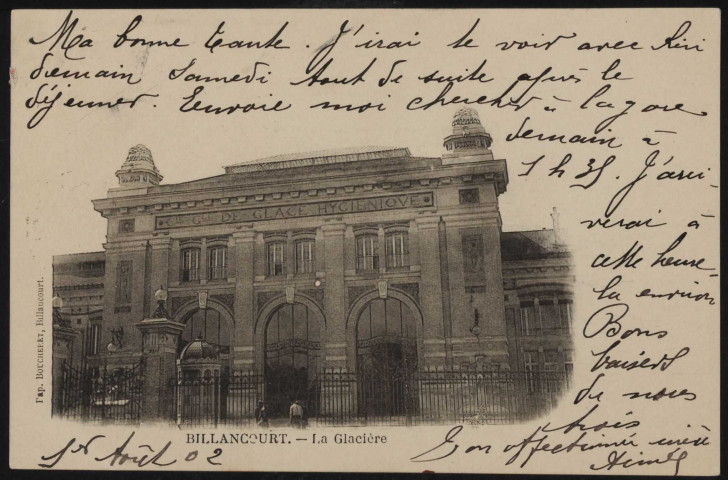 Ma bonne tante. J'irai te voir avec Riri
demain Samedi tout de suite après le
déjeuner. Envoie moi chercher à la gare
demain à
1 h 35. J'arri-
verai à
cette heure-
la environ
Bons
baisers
de nous
trois
Ton affectionnée nièce
Aimée
Cie Gle DE GLACE HYGIENIQUE
Pap. BOUCHERY, Billancourt.
BILLANCOURT. — La Glacière
1er Août 02